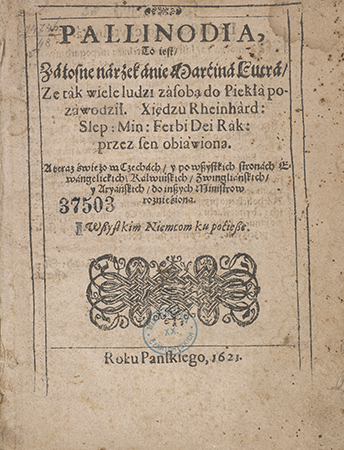 PALLINODIA,
To iest/
Záłosne nárżekánie Marćiná Lutrá/
Ze ták wiele ludzi zá sobą do Piekłá po-
záwodźił. Xiędzu Rheinhárd:
Slep: Min: Ferbi Dei Rák:
przez sen obiáwiona.
A teraz świeżo w Czechách/ y po wszystkich stronách E-
wángelickich/ Kálwińskich/ Zwingliáńskich/
y Aryáńskich/ do inszych Ministrow
roznieśiona.
37503
Wszystkim Niemcom ku poćiesze.
XX.
Roku Pańskiego, 1621.